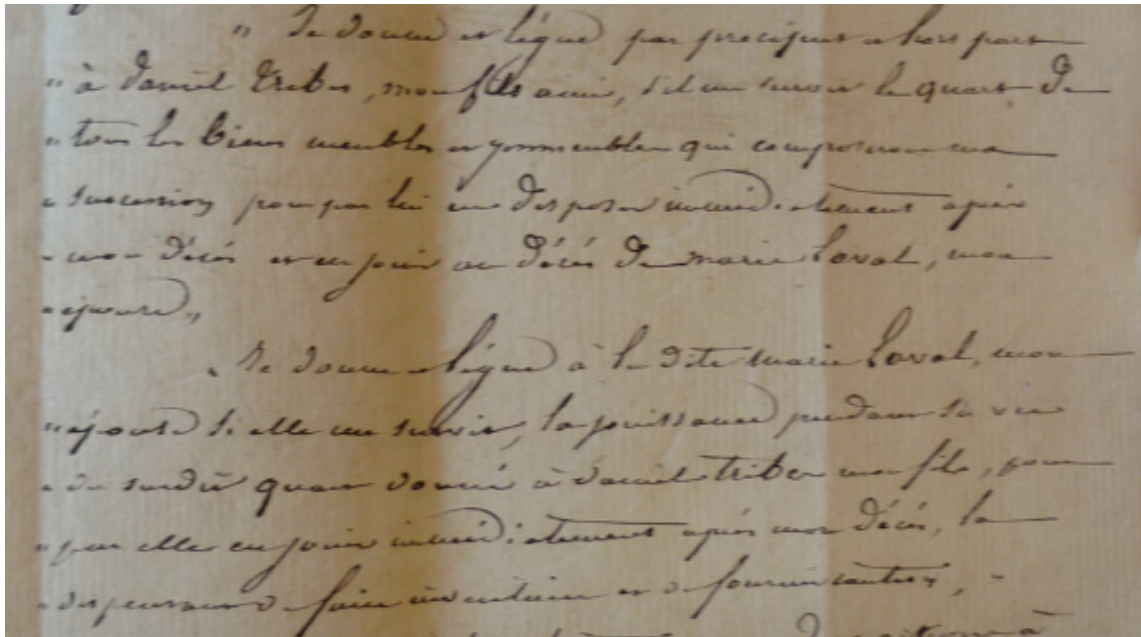 " Je donne et légue par preciput et hors part
" à daniel Tribes, mon fils ainé, s'il me survit le quart de
" tous les biens meubles et ymmeubles qui composeront ma
" succession pour par lui en disposer immédiatement après
" mon décés et en jouir au décés de marie Laval, mon
" épouse "
" Je donne et légue à la dite marie Laval, mon
" épouse si elle me survit, la jouissance pendant sa vie
" du susdit quart donné à daniel tribes mon fils, pour
" par elle en jouir immédiatement après mon décés, la
" dispensant de faire inventaire et de fournir caution, -